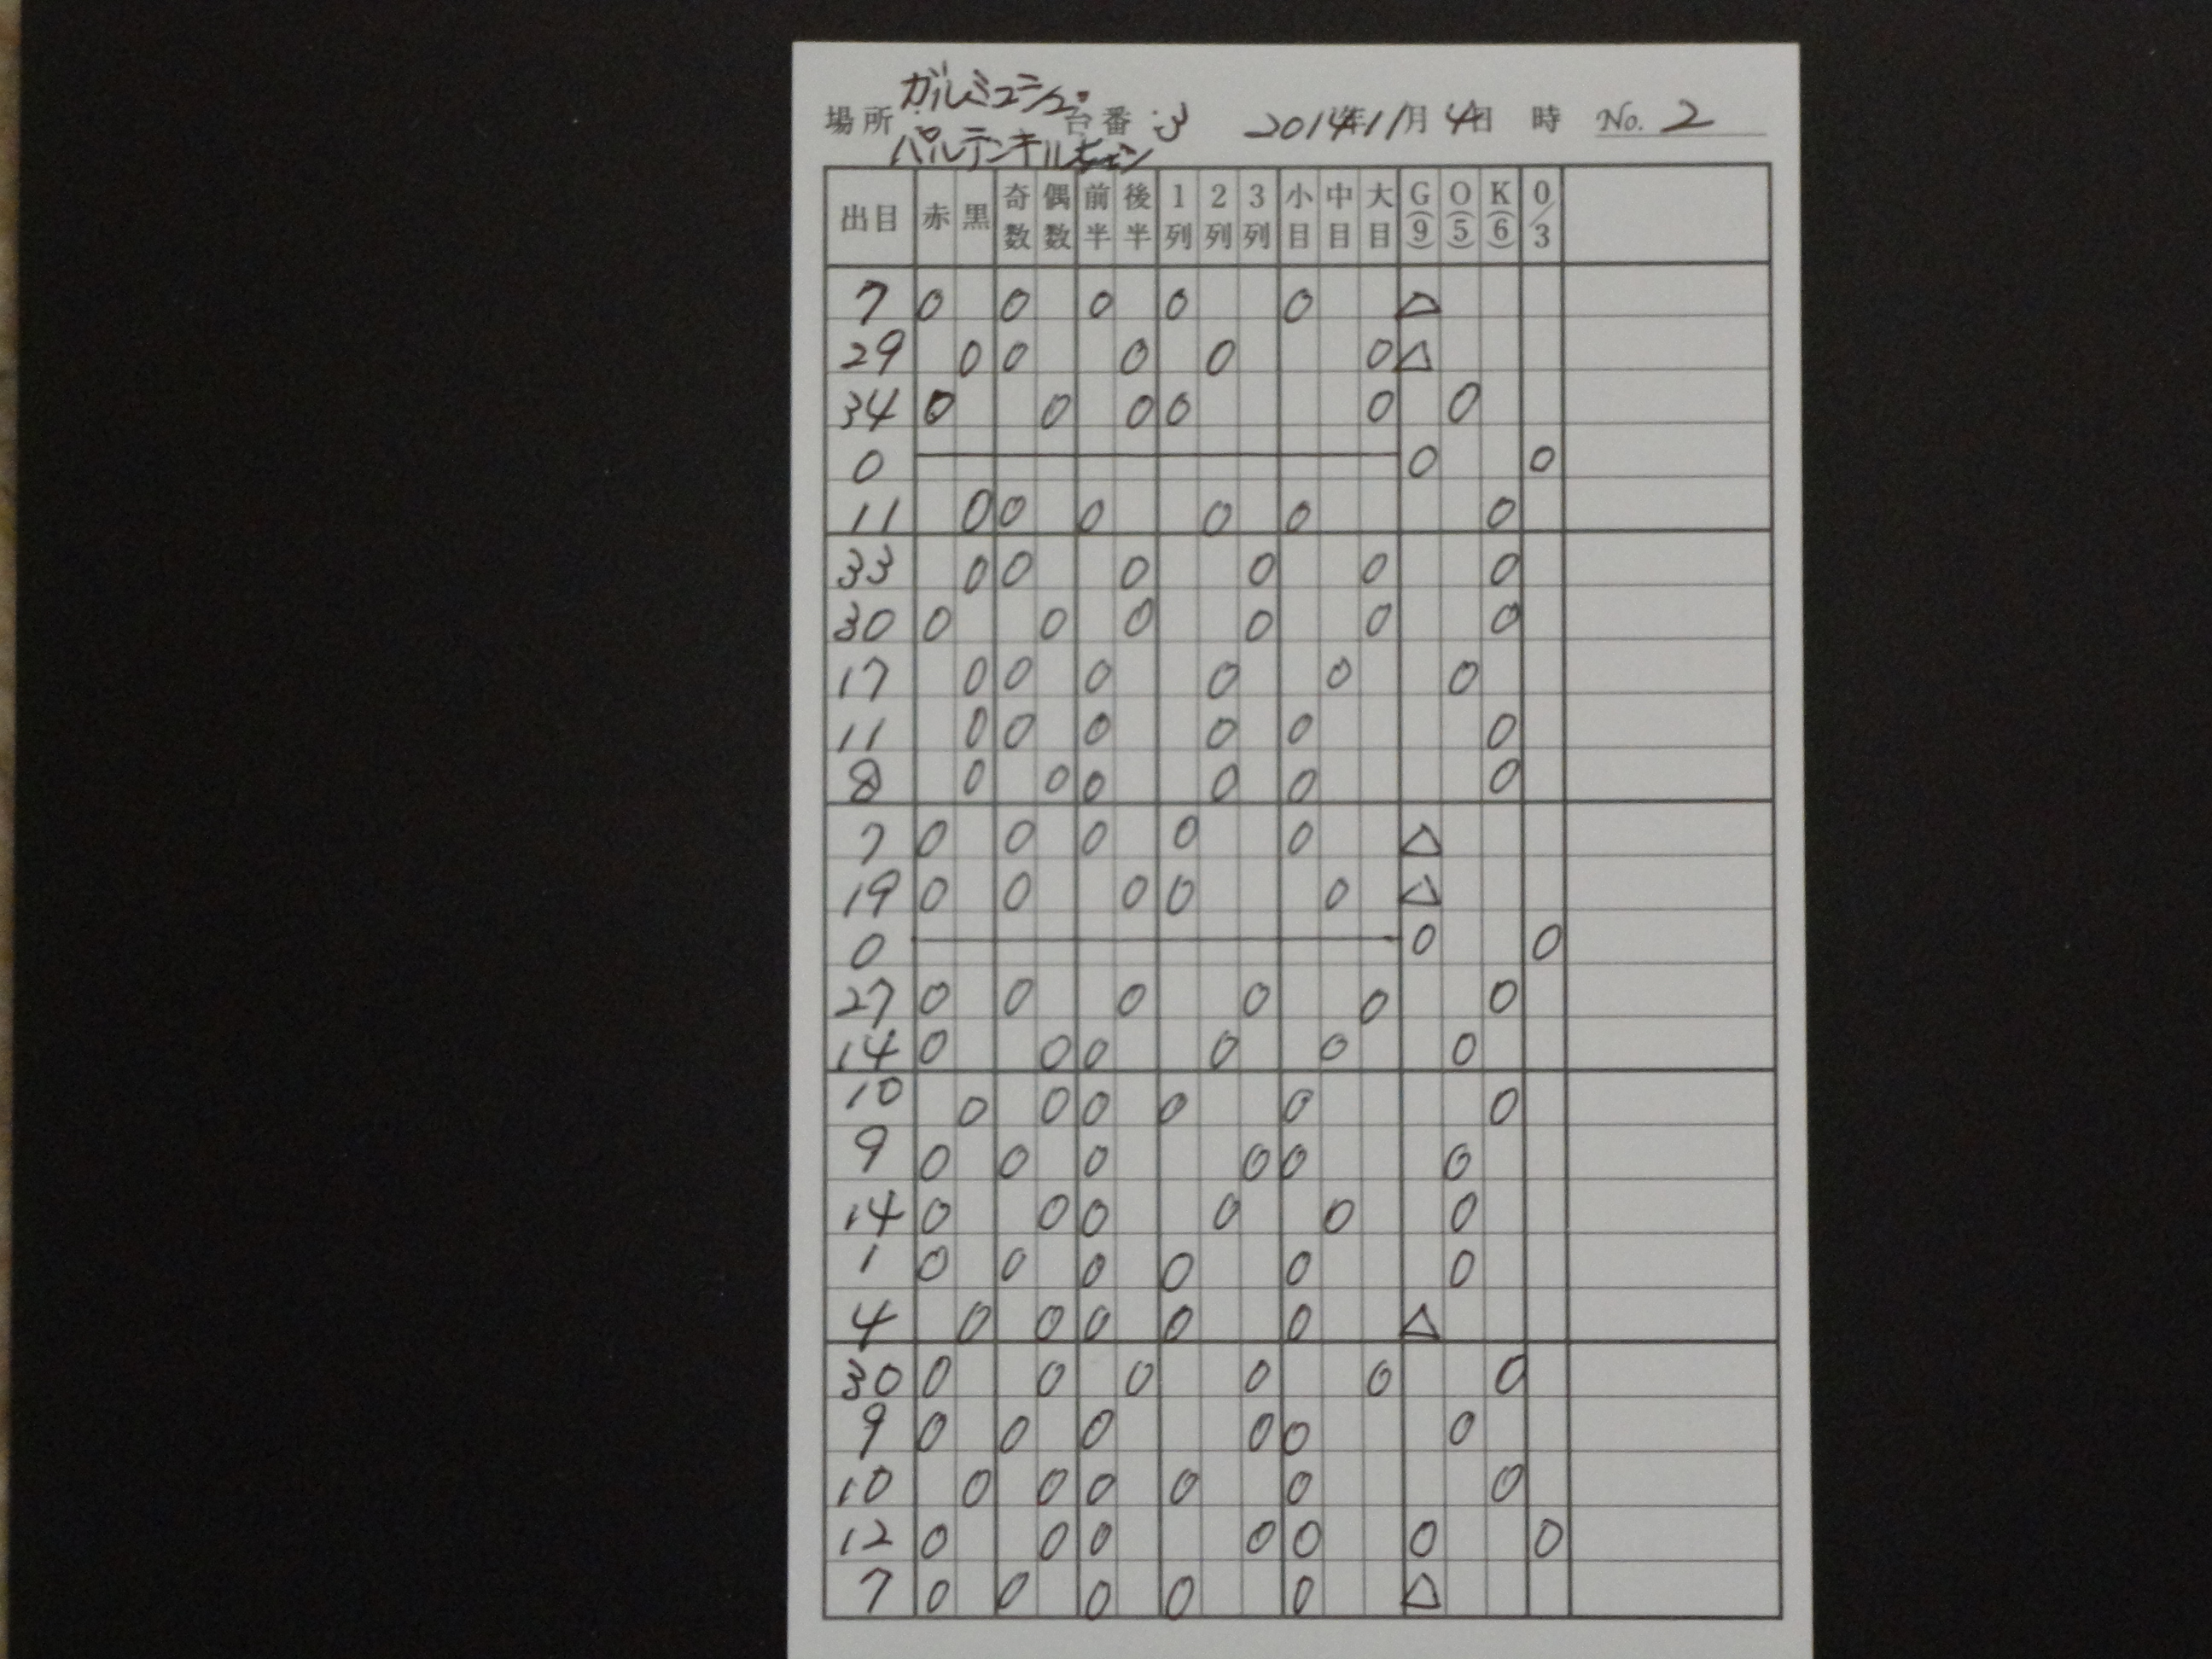 ガルミュシュ
場所 台番 3 2014年11月4日 時 No. 2
パルテンキルヒェン
出目 赤 黒 奇数 偶数 前半 後半 1列 2列 3列 小目 中目 大目 G(9) O(5) K(6) 0/3
7 0 0 0 0 0 △
29 0 0 0 0 0 △
34 0 0 0 0 0 0
0 0 0
11 0 0 0 0 0 0
33 0 0 0 0 0 0
30 0 0 0 0 0 0
17 0 0 0 0 0 0
11 0 0 0 0 0 0
8 0 0 0 0 0 0
7 0 0 0 0 0 △
19 0 0 0 0 0 △
0 0 0
27 0 0 0 0 0 0
14 0 0 0 0 0 0
10 0 0 0 0 0 0
9 0 0 0 0 0 0
14 0 0 0 0 0 0
1 0 0 0 0 0 0
4 0 0 0 0 0 △
30 0 0 0 0 0 0
9 0 0 0 0 0 0
10 0 0 0 0 0 0
12 0 0 0 0 0 0 0
7 0 0 0 0 0 △